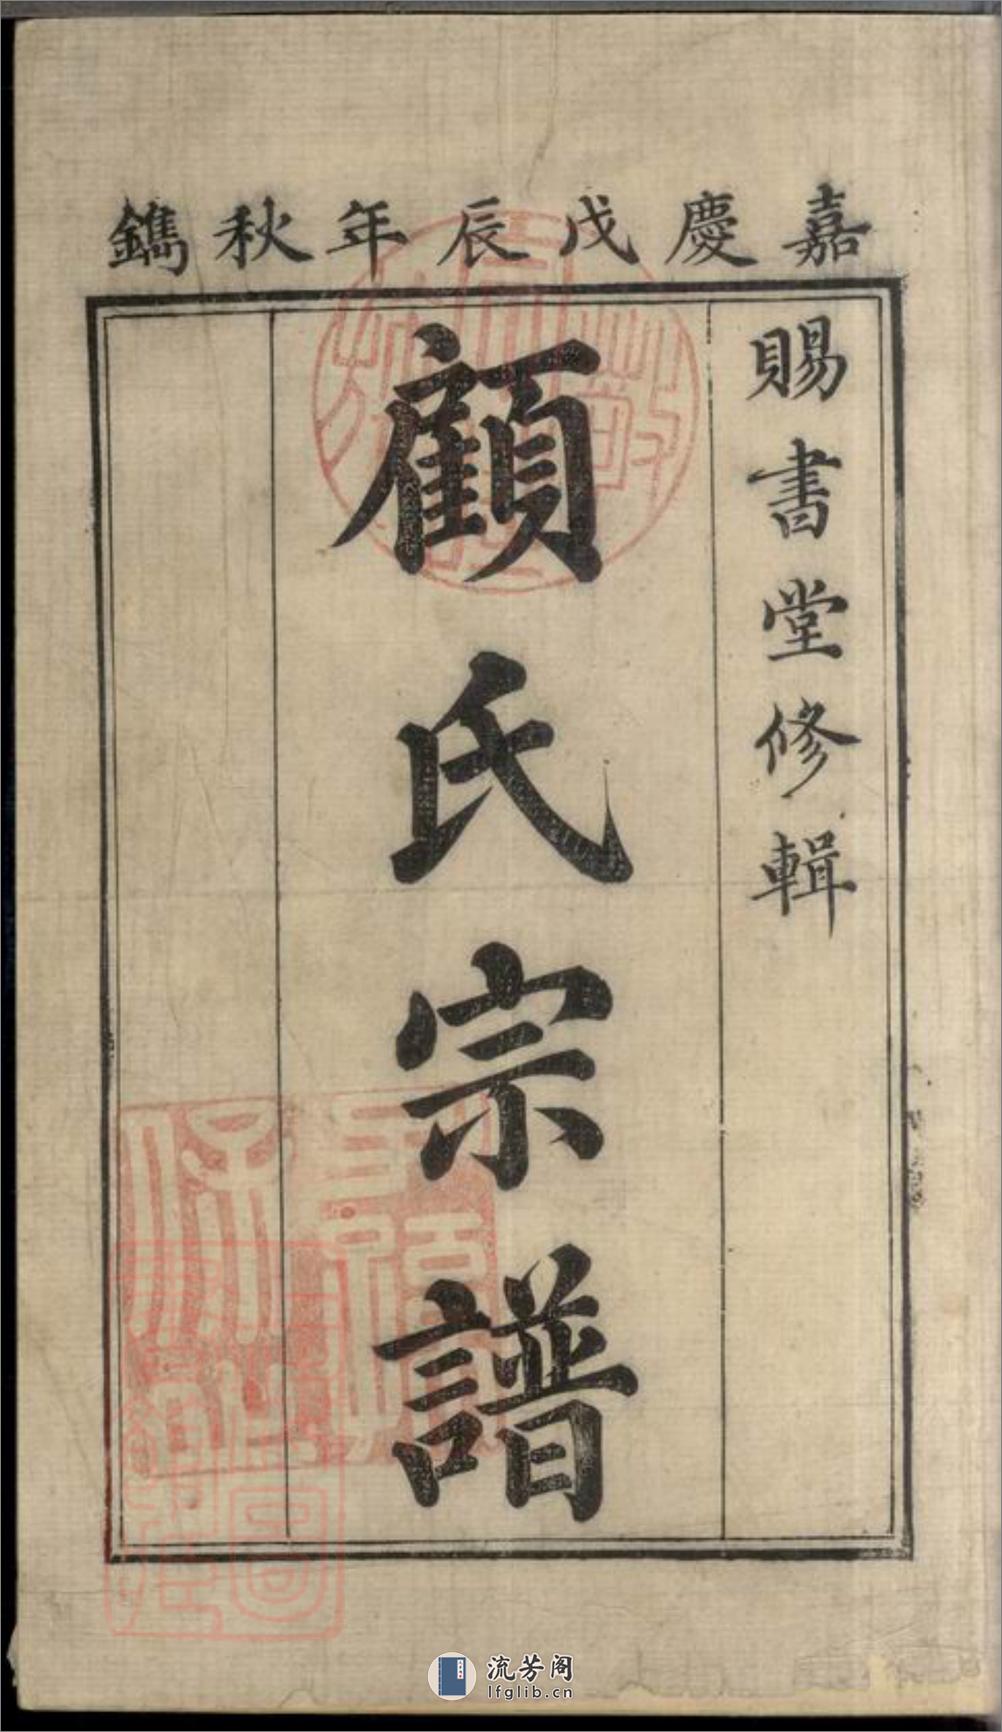 嘉慶戊辰年秋鐫
賜書堂修輯
顧氏宗譜
流芳阁
lfglib.cn